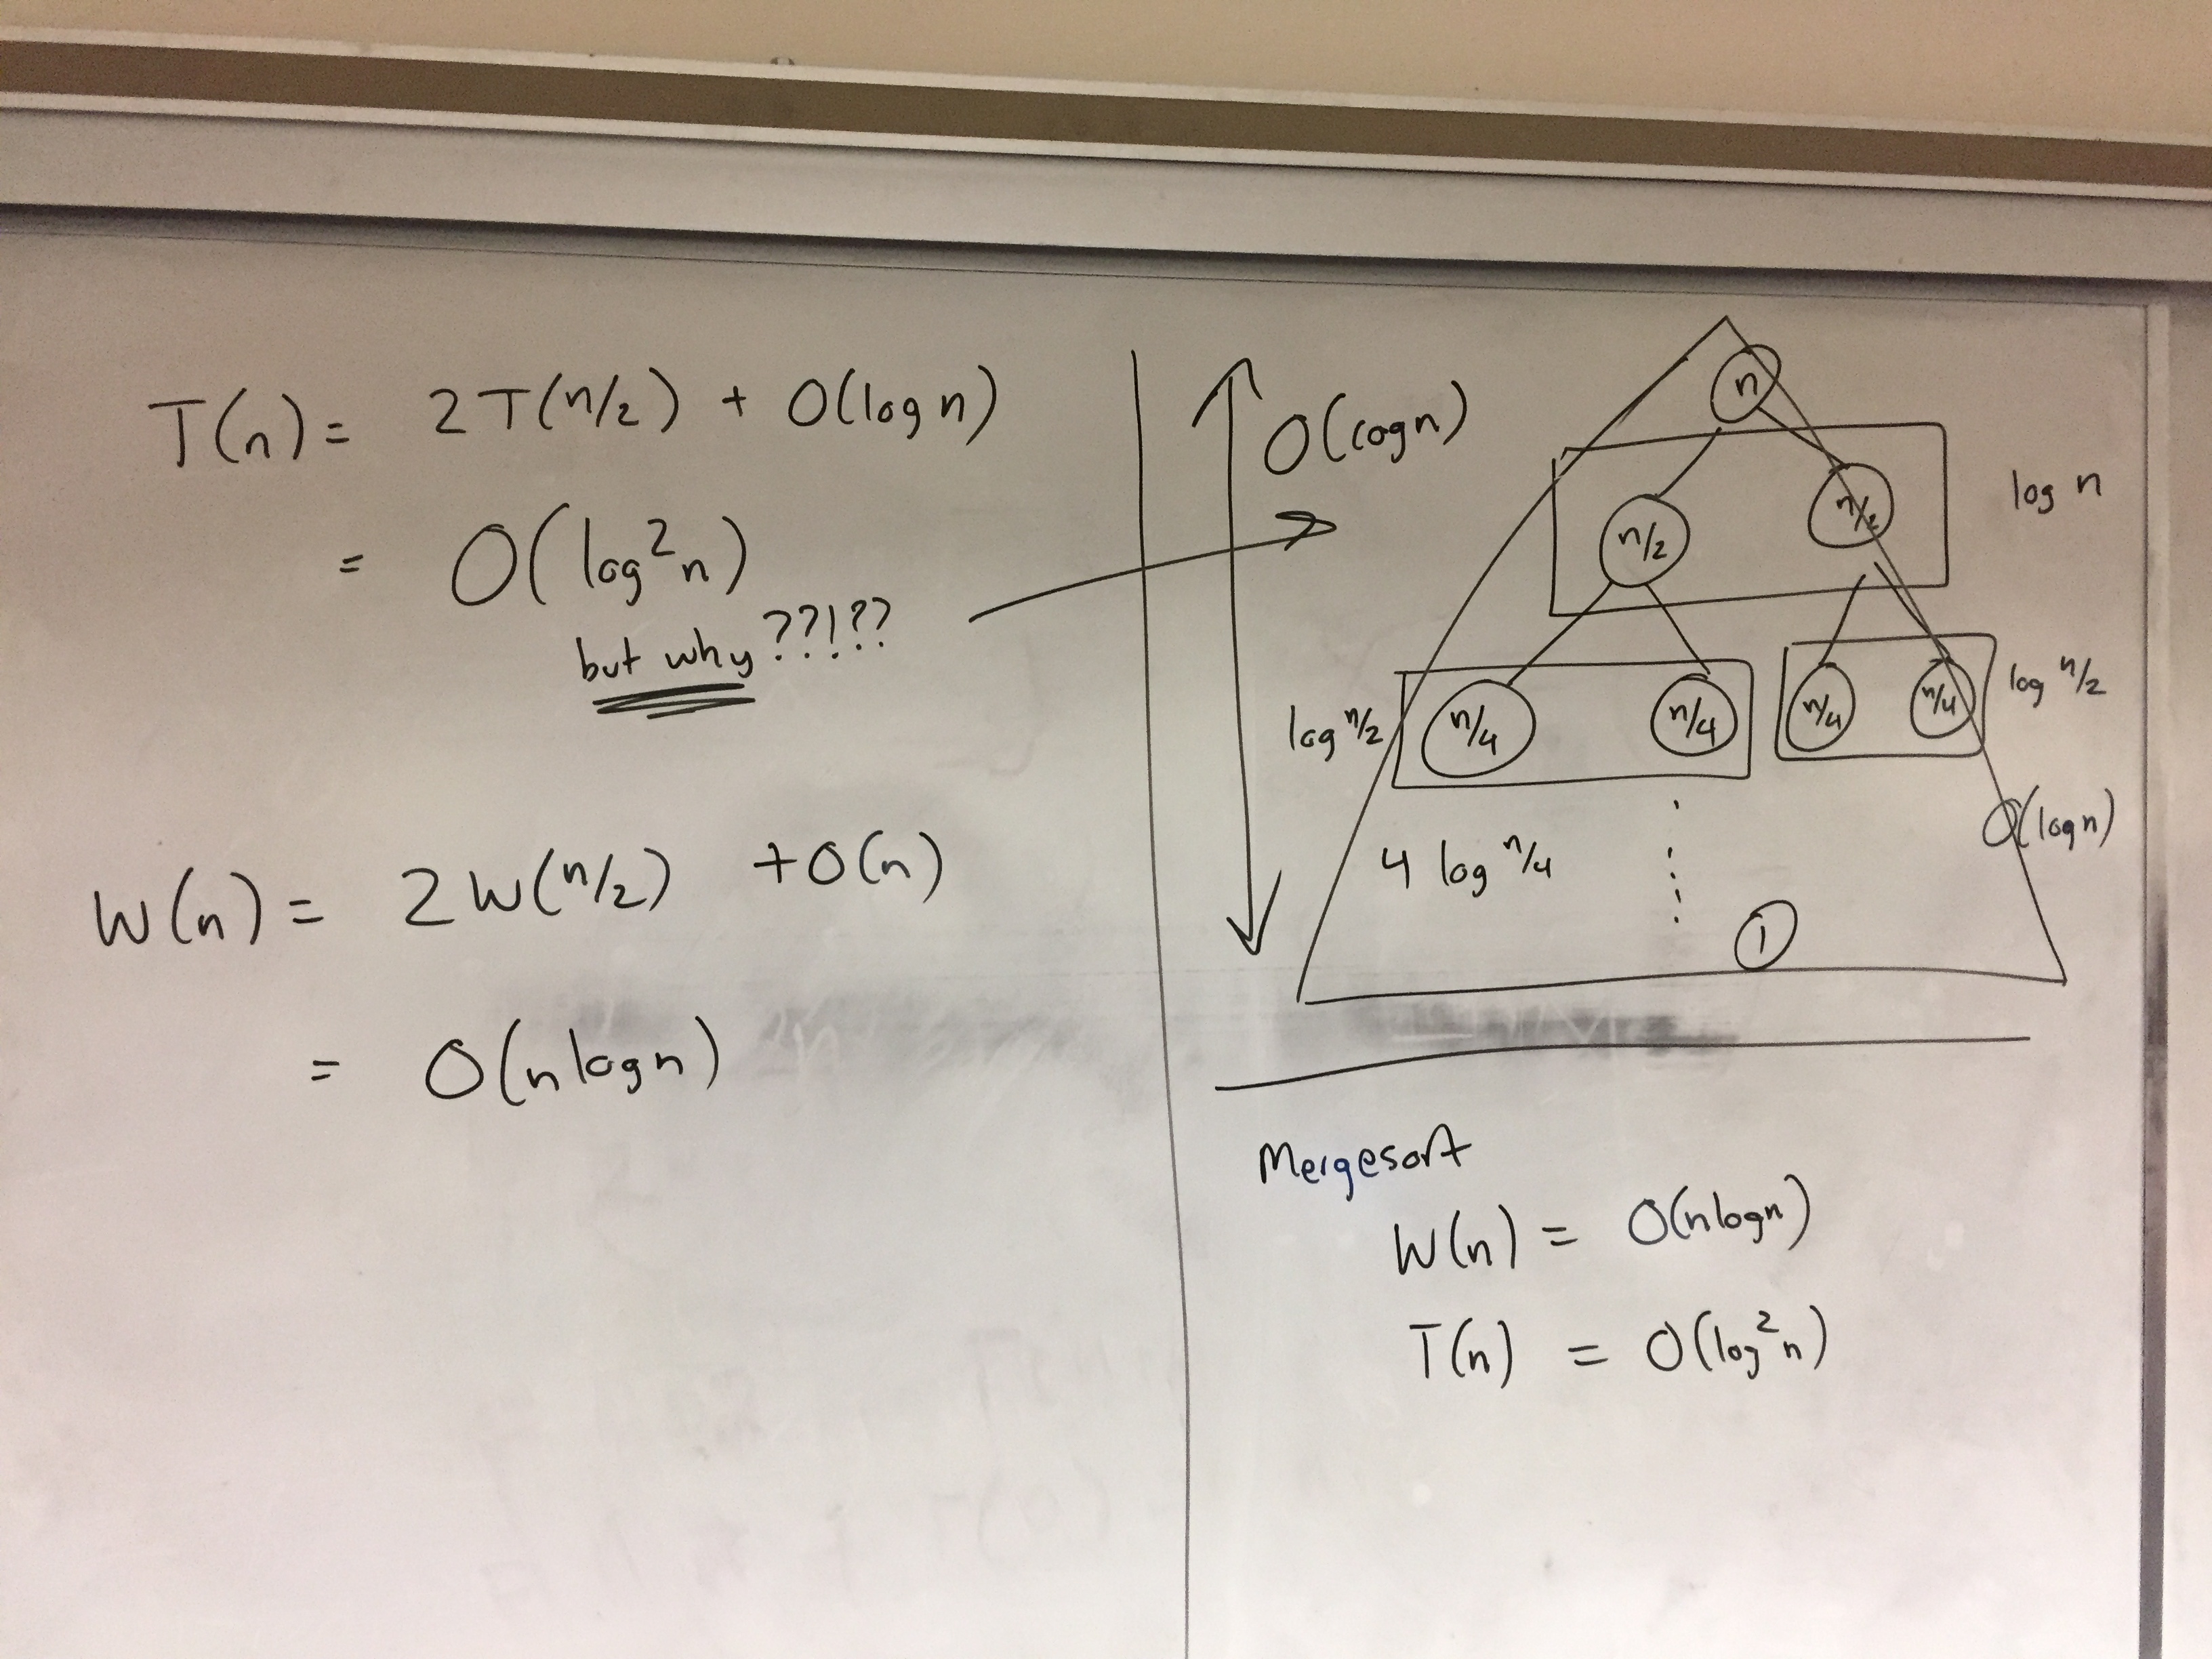 T(n) = 2T(n/2) + O(log n)
= O(log²n)
but why ??!??
W(n) = 2W(n/2) + O(n)
= O(n log n)
O(log n)
n
n/2 n/2 log n
log n/2 n/4 n/4 n/4 n/4 log n/2
4 log n/4 O(log n)
1
Mergesort
W(n) = O(n log n)
T(n) = O(log²n)